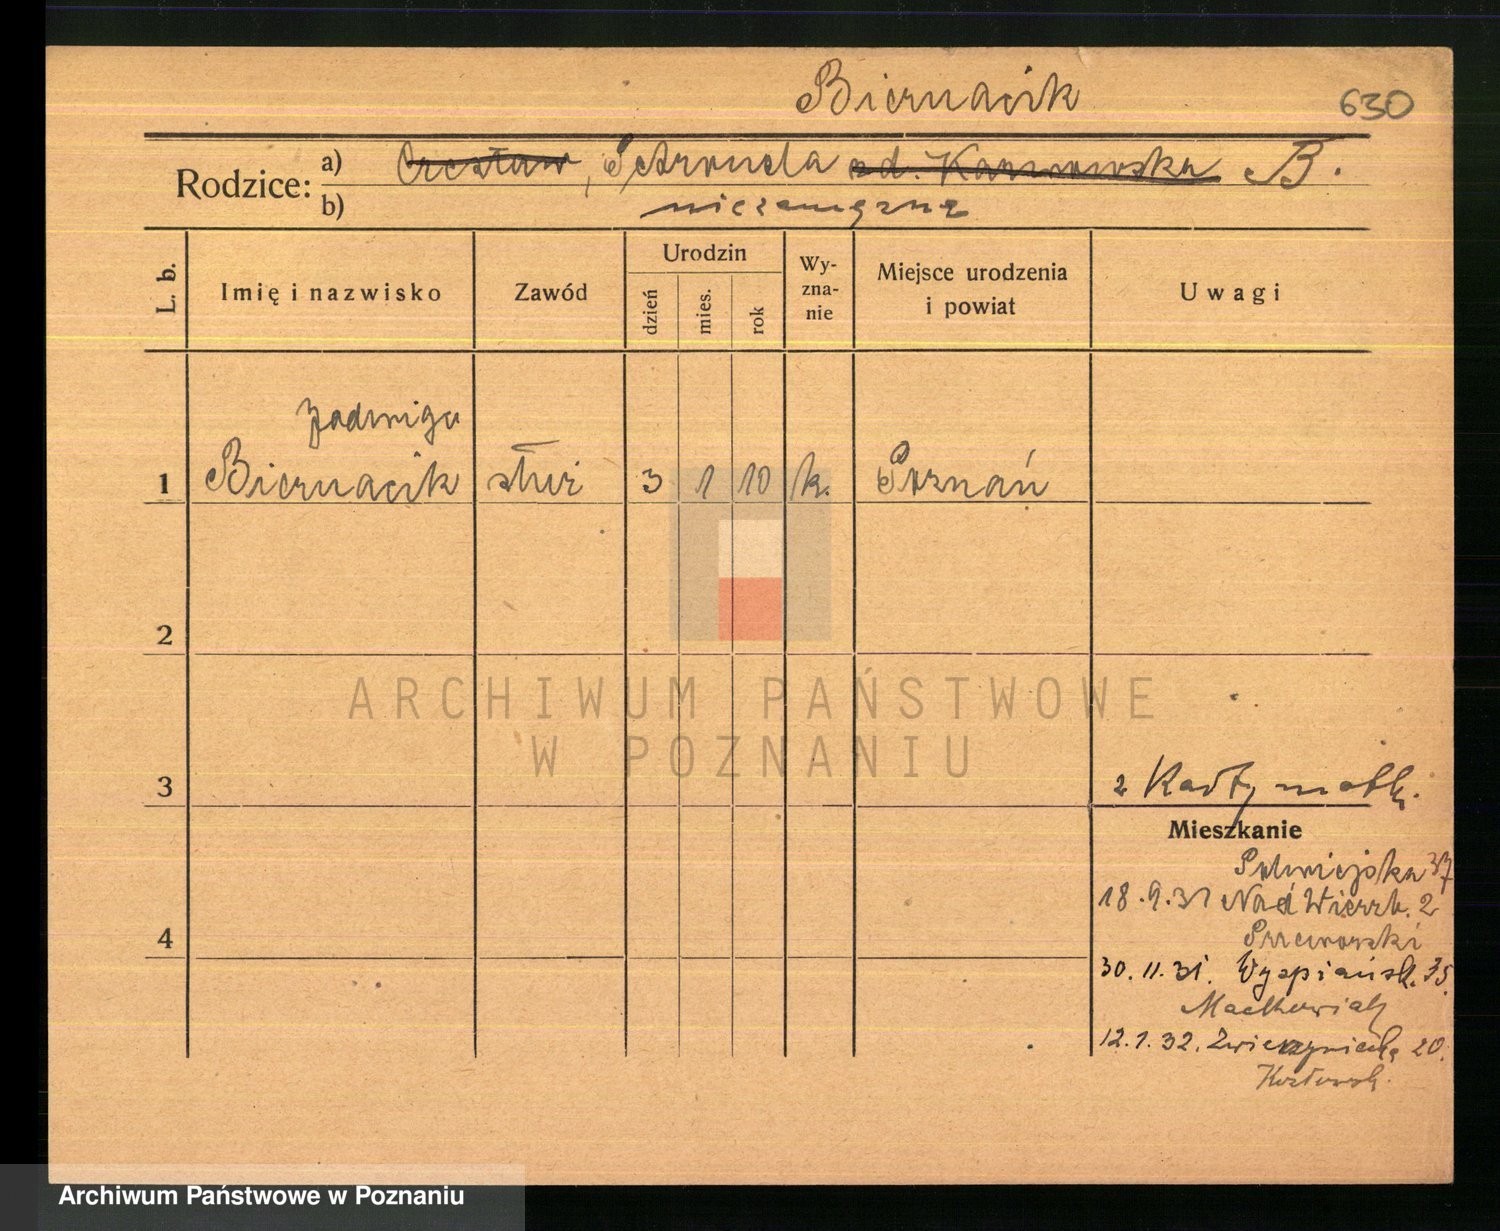 Biernacik 630
Rodzice: a) Czesław, Petronela zd. Kaczmarska B.
b) niezamężna
L. b. Imię i nazwisko Zawód Urodzin dzień mies. rok Wy-zna-nie Miejsce urodzenia i powiat Uwagi
Jadwiga
1 Biernacik służ 3 1 10 k. Poznań
2
ARCHIWUM PAŃSTWOWE
W POZNANIU
3 2 Karty matk.
Mieszkanie
Półwiejska 37
18.9.31 Nad Wierzb. 2
4
30.11.31. Wyspiańsk. 35.
Maćkowiak
12.1.32. Zwierzyniecka 20.
Kozłowsk.
Archiwum Państwowe w Poznaniu